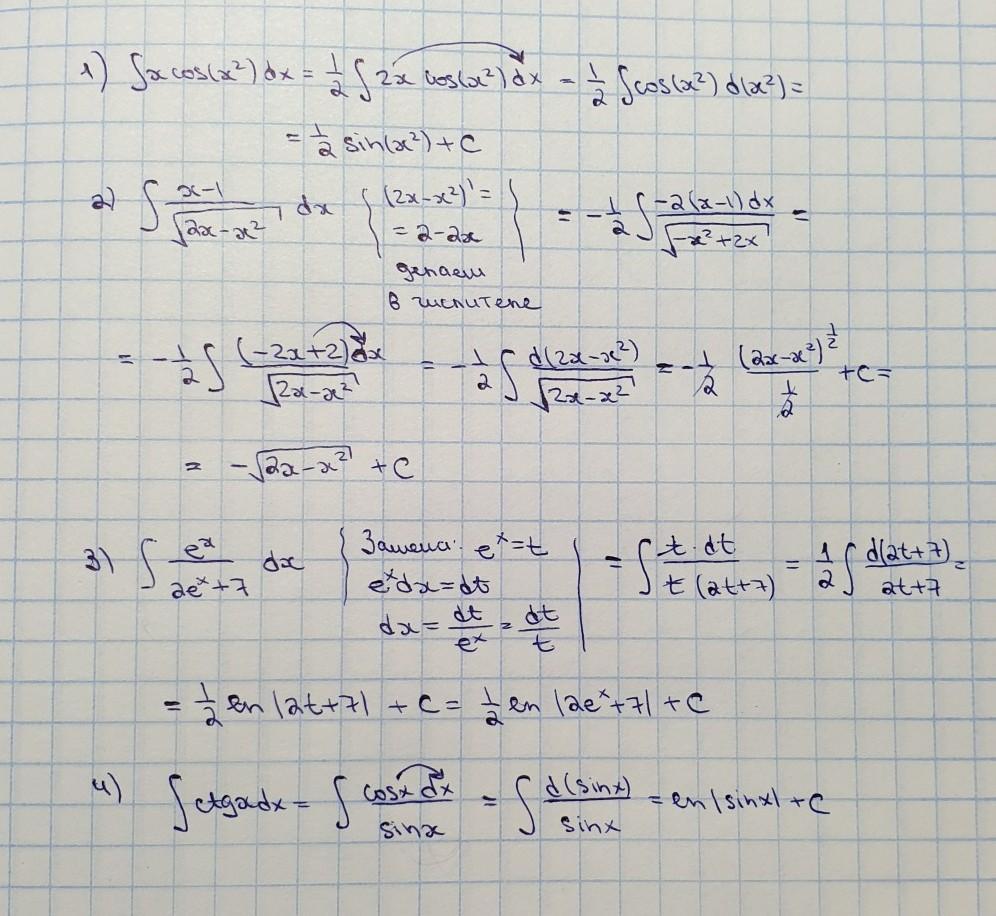 1) ∫x cos(x²) dx = 1/2 ∫ 2x cos(x²) dx = 1/2 ∫cos(x²) d(x²) =
= 1/2 sin(x²) + C
2) ∫ (x-1)/√(2x-x²) dx { (2x-x²)' = = 2-2x } = -1/2 ∫ (-2(x-1)dx)/√(-x²+2x) =
делаем
в числителе
= -1/2 ∫ ((-2x+2)dx)/√(2x-x²) = -1/2 ∫ d(2x-x²)/√(2x-x²) = -1/2 (2x-x²)^(1/2)/(1/2) + C =
= -√(2x-x²) + C
3) ∫ e^x/(2e^x+7) dx { Замена: e^x = t | = ∫ (t·dt)/(t(2t+7)) = 1/2 ∫ d(2t+7)/(2t+7) =
e^x dx = dt
dx = dt/e^x = dt/t
= 1/2 ln |2t+7| + C = 1/2 ln |2e^x+7| + C
4) ∫ctgx dx = ∫ (cosx dx)/sinx = ∫ d(sinx)/sinx = ln |sinx| + C